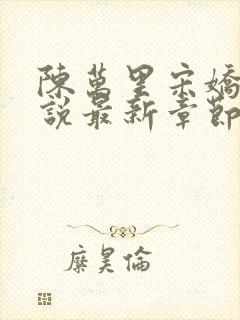 陳萬里宋嬌
說最新章節
糜昊倫